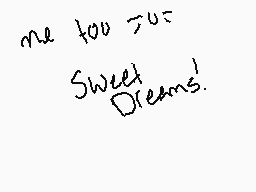 me too =u=
Sweet
Dreams!